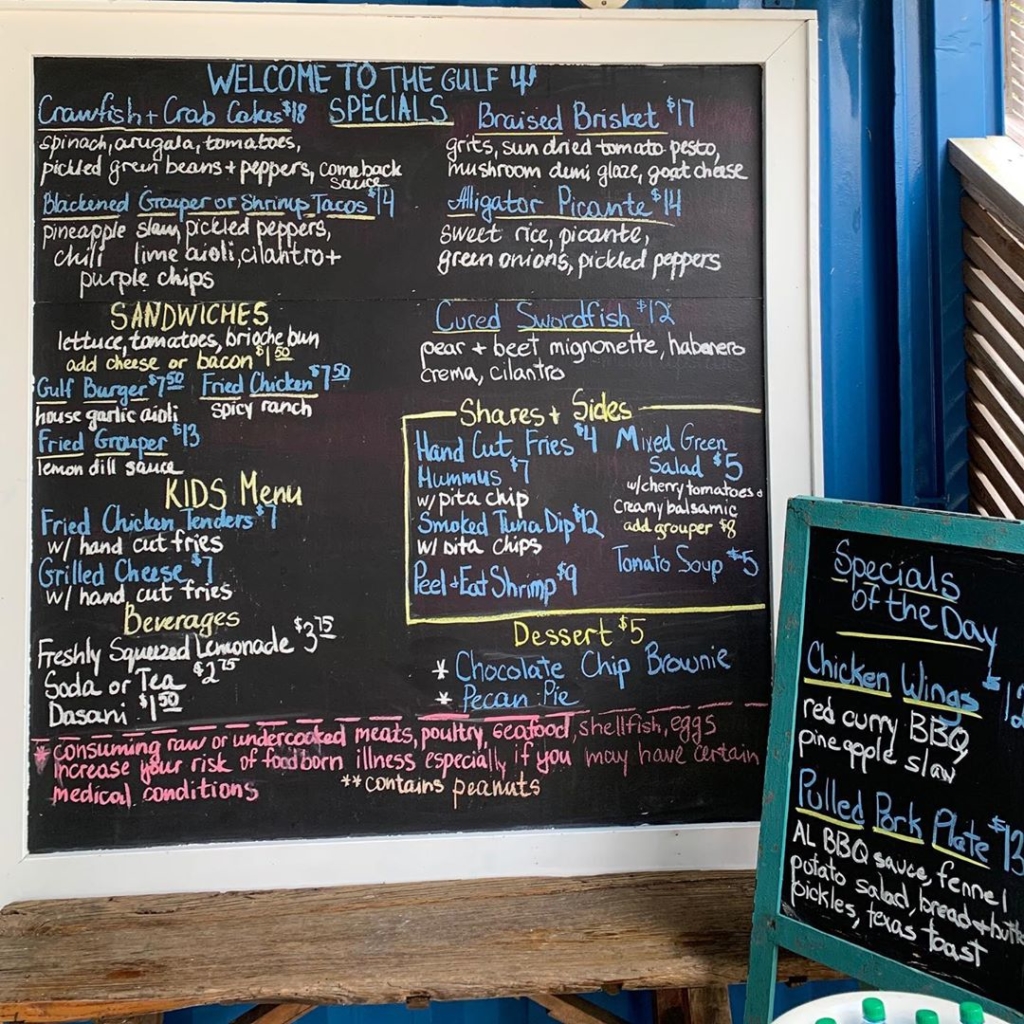 WELCOME TO THE GULF
SPECIALS
Crawfish + Crab Cakes $18
spinach, arugala, tomatoes,
pickled green beans + peppers, comeback
sauce
Blackened Grouper or Shrimp Tacos $14
pineapple slaw, pickled peppers,
chili lime aioli, cilantro +
purple chips
Braised Brisket $17
grits, sun dried tomato pesto,
mushroom demi glaze, goat cheese
Alligator Picante $14
sweet rice, picante,
green onions, pickled peppers
Cured Swordfish $12
pear + beet mignonette, habenero
crema, cilantro
SANDWICHES
lettuce, tomatoes, brioche bun
add cheese or bacon $1.50
Gulf Burger $7.50 Fried Chicken $7.50
house garlic aioli spicy ranch
Fried Grouper $13
lemon dill sauce
KIDS Menu
Fried Chicken Tenders $7
w/ hand cut fries
Grilled Cheese $7
w/ hand cut fries
Beverages
Freshly Squeezed Lemonade $3.75
Soda or Tea $2.75
Dasani $1.50
Shares + Sides
Hand Cut Fries $4
Hummus $7
w/ pita chip
Smoked Tuna Dip $12
w/ pita chips
Peel + Eat Shrimp $9
Mixed Green
Salad $5
w/ cherry tomatoes +
creamy balsamic
add grouper $8
Tomato Soup $5
Dessert $5
* Chocolate Chip Brownie
* Pecan Pie
* consuming raw or undercooked meats, poultry, seafood, shellfish, eggs
increase your risk of foodborn illness especially if you may have certain
medical conditions
**contains peanuts
Specials
of the Day
Chicken Wings
red curry BBQ,
pineapple slaw
Pulled Pork Plate $13
AL BBQ sauce, fennel
potato salad, bread + butt
pickles, texas toast